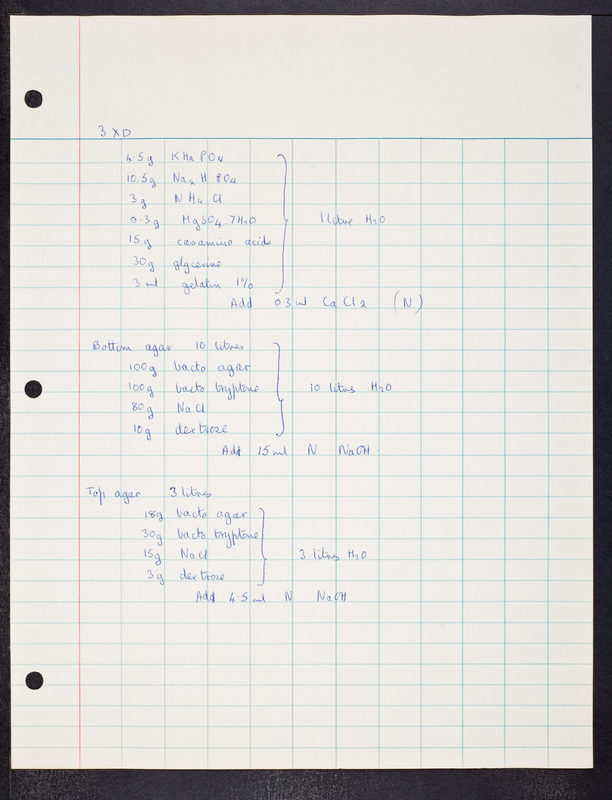 3 XD
4.5g KH2 PO4
10.5g Na2 H PO4
3g NH4 Cl
0.3g MgSO4.7H2O
15g casamino acids
30g glycerine
3 ml gelatin 1%
1 litre H2O
Add 0.3 ml Ca Cl2 (N)
Bottom agar 10 litres.
100g bacto agar
100g bacto tryptene
80g NaCl
10g dextrose
10 litres H2O
Add 15 ml N NaOH.
Top agar 3 litres
18g bacto agar
30g bacto tryptene
15g NaCl
3g dextrose
3 litres H2O
Add 4.5 ml N NaOH